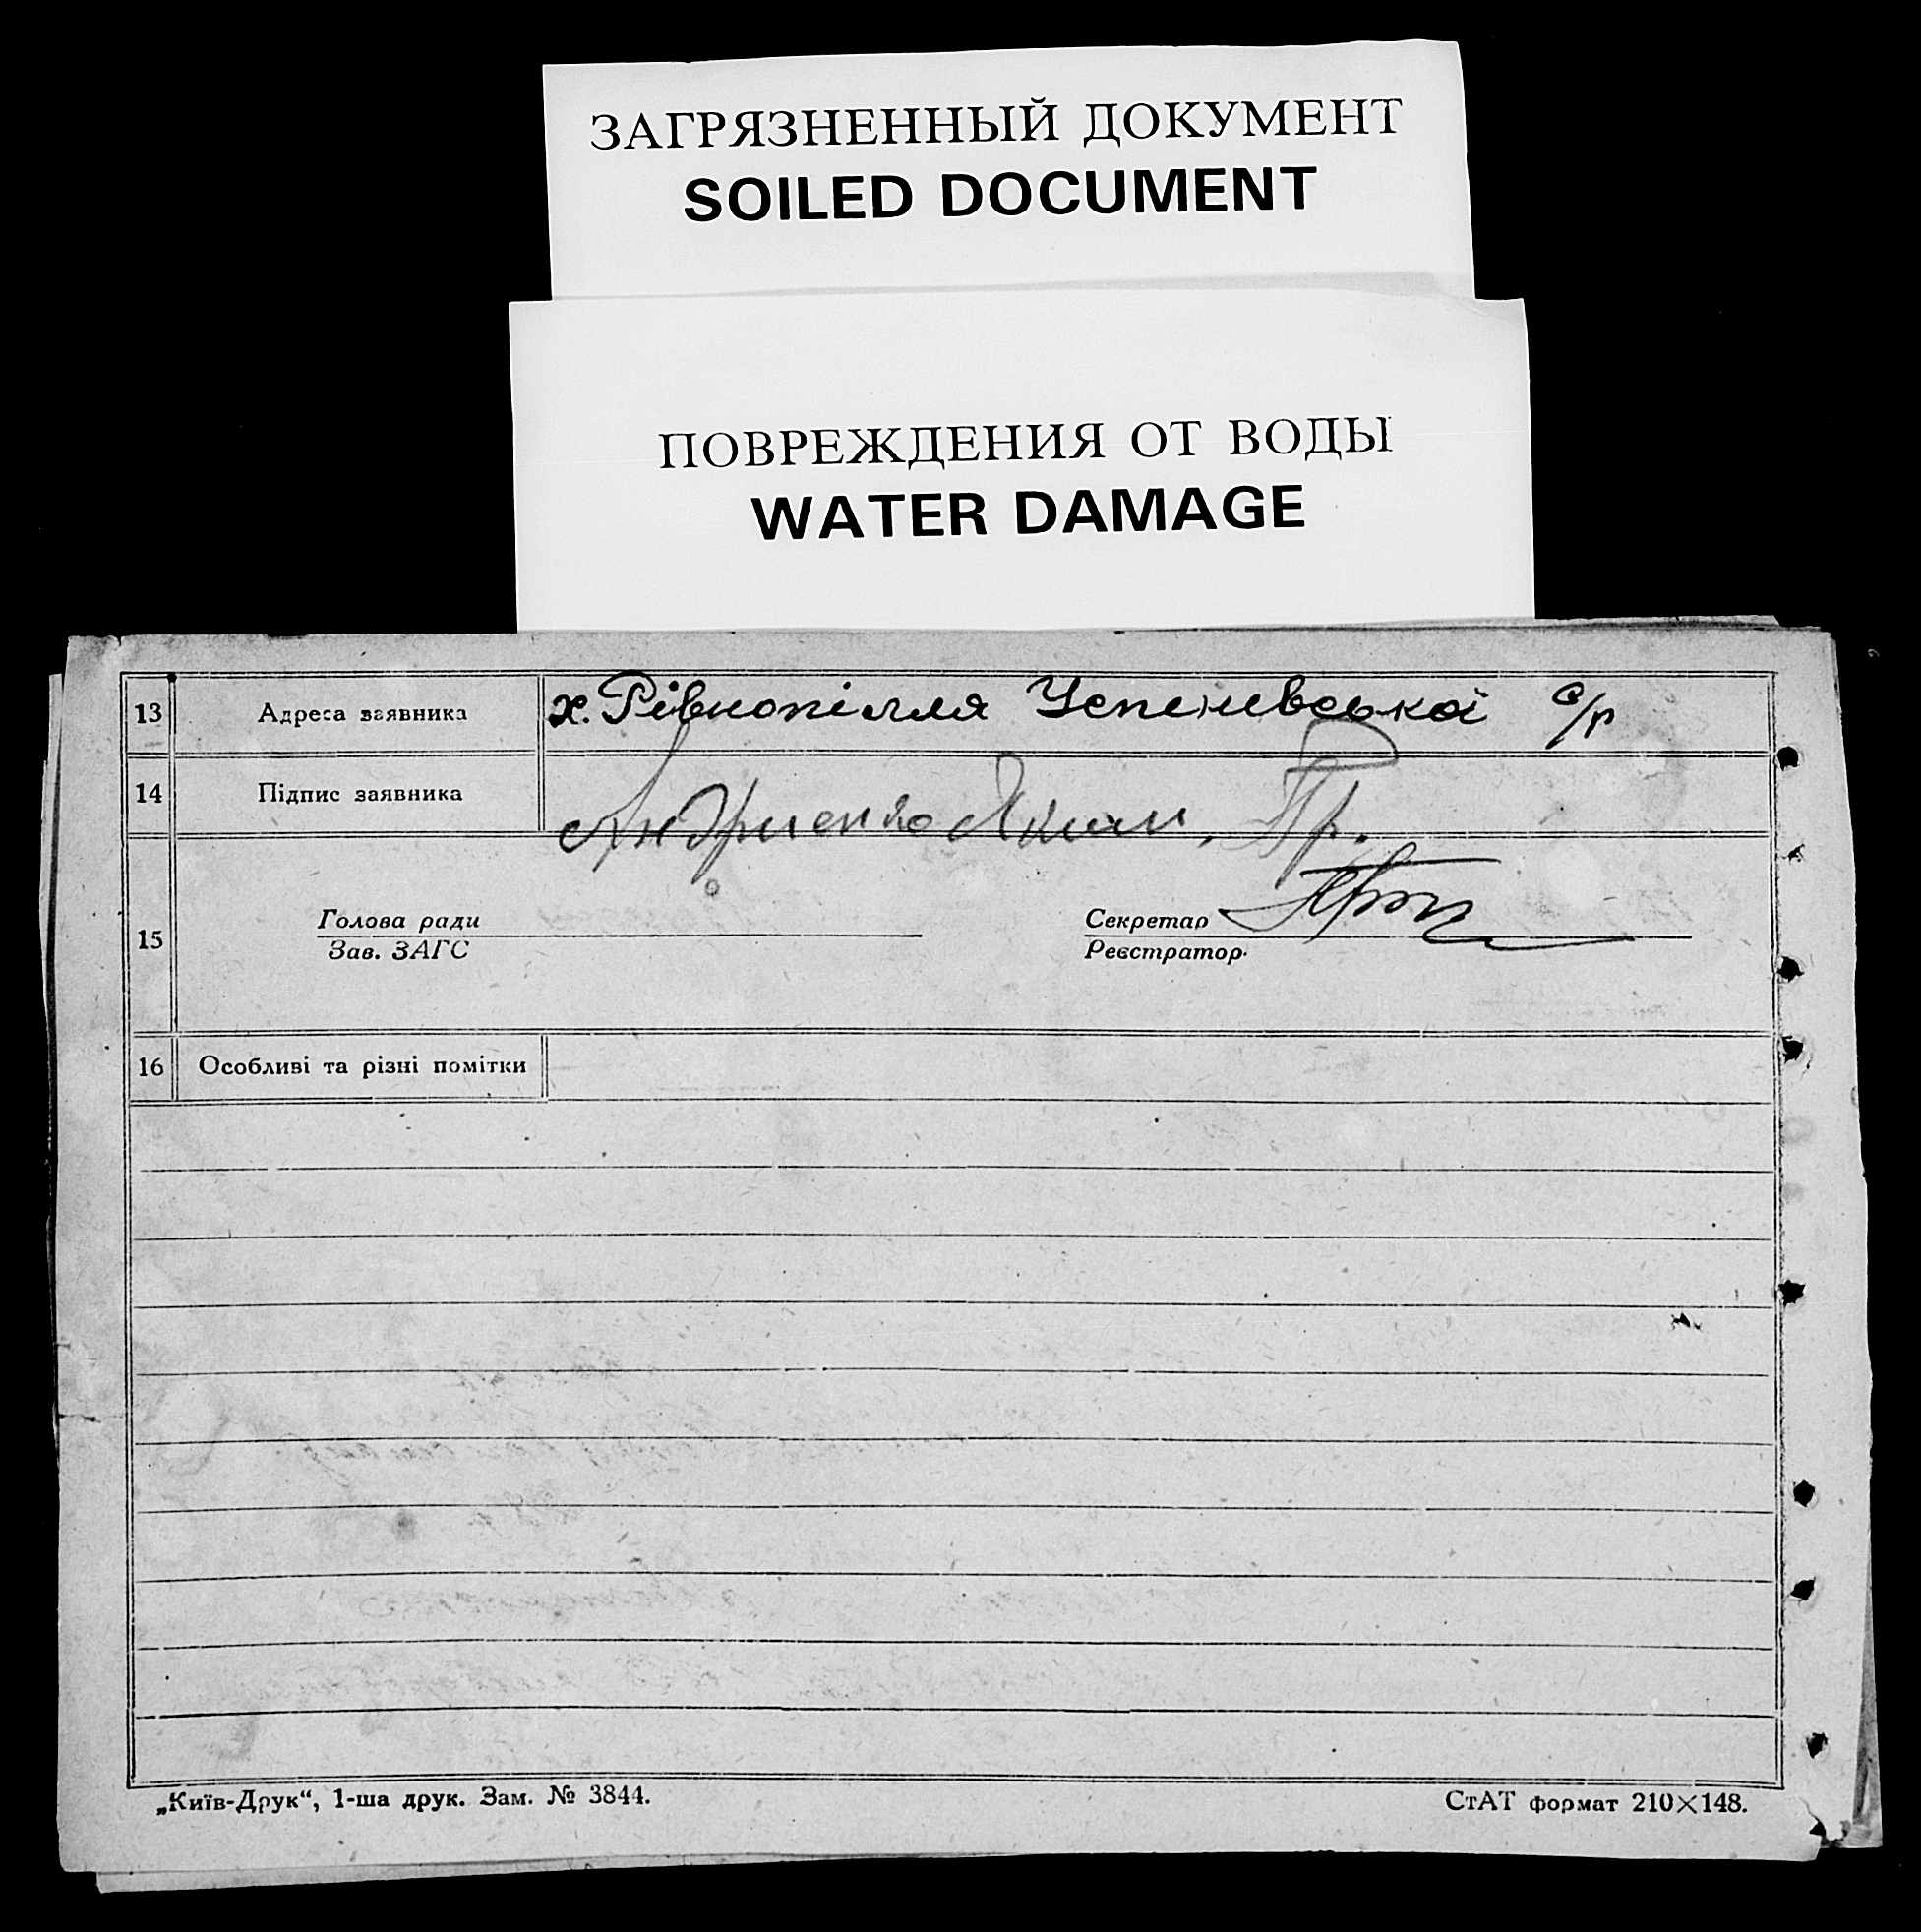 ЗАГРЯЗНЕННЫЙ ДОКУМЕНТ
SOILED DOCUMENT
ПОВРЕЖДЕНИЯ ОТ ВОДЫ
WATER DAMAGE
13 Адреса заявника х. Рівнопілля Успенивської с/р
14 Підпис заявника Андриенко Яким. Пр.
15 Голова ради Секретар
Зав. ЗАГС Реєстратор
16 Особливі та різні помітки
„Київ-Друк“, 1-ша друк. Зам. № 3844. СтАТ формат 210×148.